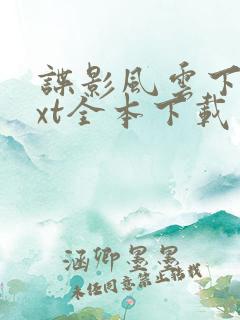 諜影風雲下
xt全本下載
涵卿墨墨
未经同意禁止搭载